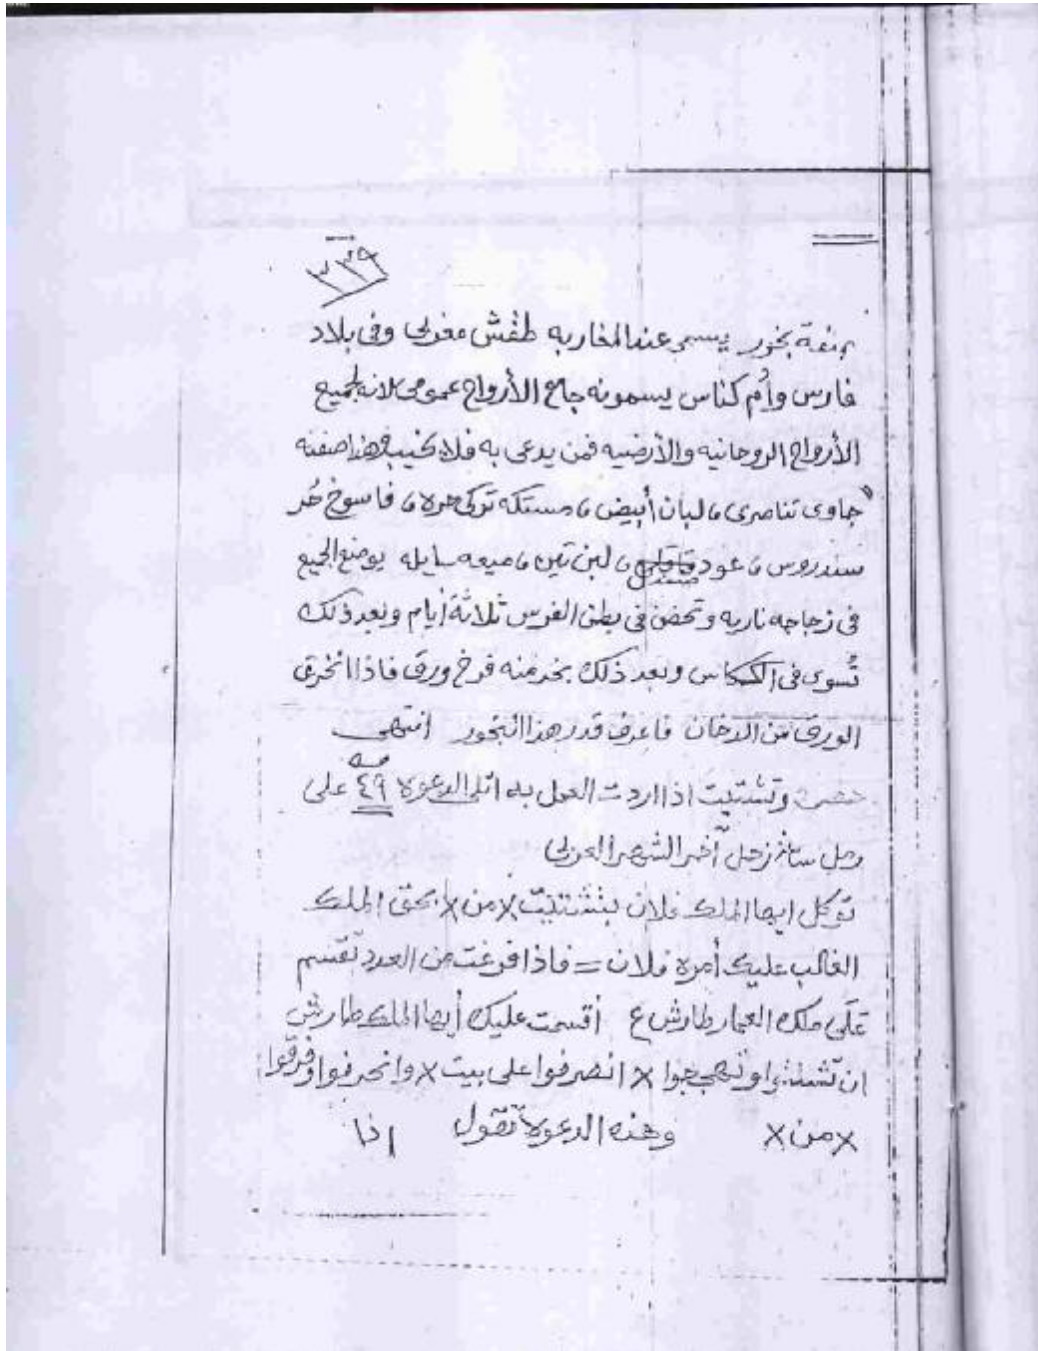 ٣٣٩
صفة بخور يسمى عند المغاربه طفش مغربى وفى بلاد
فارس وأم كناس يسمونه جامع الأرواح عمومى لانه لجميع
الأرواح الروحانيه والأرضيه فمن يدعى به فلا يخيب وهذا صفته
جاوى تناصرى ، لبان أبيض ، مستكه تركى حره ، فاسوخ حُر
سندروس ، عود ، لبن تين ، ميعه سايله يوضع الجميع
فى زجاجه ناريه وتحضن فى بطن الفرس ثلاثة أيام وبعد ذلك
تُسوى فى وبعد ذلك بخر منه فرخ ورق فاذا انخرق
الورق من الدخان فاعرف قدر هذا البخور انتهى
وتشتيت اذا اردت العمل به اتلى الدعوة ٤٩ مره على
زحل آخر الشهر العربى
توكل ايها الملك فلان بتشتيت × من × بحق الملك
الغالب عليك أمره فلان = فاذا فرغت من العدد تقسم
على ملك العمار طارش ع أقسمت عليك أيها الملك طارش
ان وتهيجوا × انصرفوا على بيت × وانحرفوا وفرقوا
× من × وهذه الدعوة تقول اذا